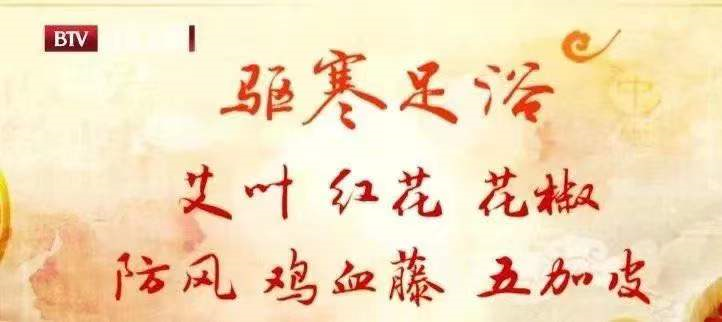 BTV
驱寒足浴
艾叶 红花 花椒
防风 鸡血藤 五加皮